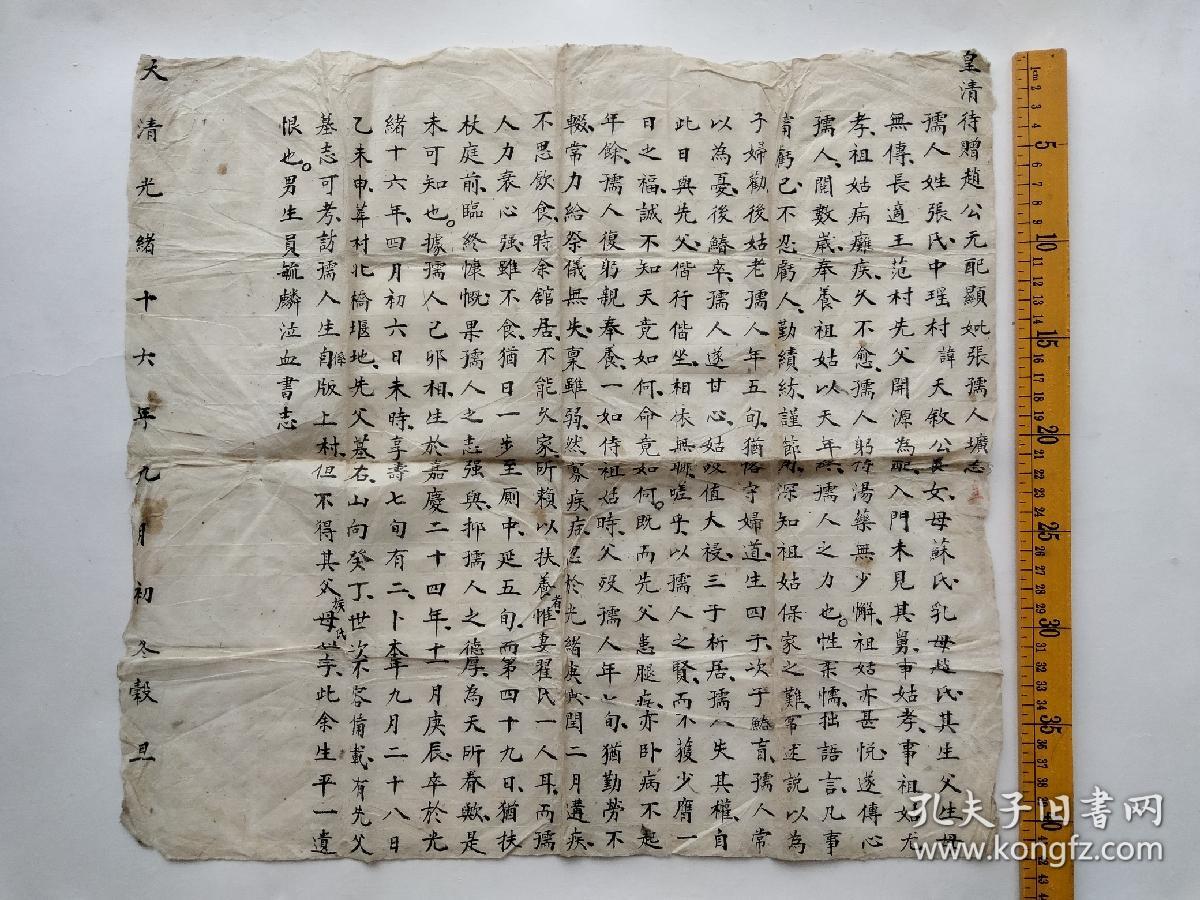 皇清待贈趙公元配顯妣張孺人壙志
孺人姓張氏中瑶村諱天敘公長女母蘇氏乳母趙氏其生父生母
無傳長適王范村先父開源為配入門未見其舅事姑孝事祖姑尤
孝祖姑病癱疾久不愈孺人躬侍湯藥無少懈祖姑亦甚悅遂傳心
孺人閱數歲奉養祖姑以天年終孺人之力也性柔懦拙語言凡事
甯虧己不忍虧人勤績紡謹節用深知祖姑保家之難常述說以為
子婦勸後姑老孺人年五旬猶恪守婦道生四子次子鰆盲孺人常
以為憂後鰆卒孺人遂甘心姑歿值大祲三子析居孺人失其權自
此日與先父偕行偕坐相依無聊嗟乎以孺人之賢而不獲少膺一
日之福誠不知天竟如何命竟如何既而先父患腿疾亦卧病不起
年餘孺人復躬親奉養一如侍祖姑時父歿孺人年七旬猶勤勞不
輟常力給祭儀無失稟雖弱然寡疾病忽於光緒庚寅閏二月遘疾
不思飲食時余舘居不能久家所賴以扶養者惟妻翟氏一人耳而孺
人力衰心强雖不食猶日一步至厠中延五旬而第四十九日猶扶
杖庭前臨終慷慨果孺人之志强與抑孺人之德厚為天所眷歟是
未可知也據孺人己卯相生於嘉慶二十四年十一月庚辰卒於光
緒十六年四月初六日未時享壽七旬有二卜本年九月二十八日
乙未申葬村北橋堰地先父墓右山向癸丁世次不容備載有先父
墓志可考訪孺人生自係版上村但不得其父母族氏學此余生平一遺
恨也男生員毓麟泣血書志
大清光緒十六年九月初冬穀旦
1cm 2 3 4 5 6 7 8 9 10 11 12 13 14 15 16 17 18 19 20 21 22 23 24 25 26 27 28 29 30 31 32 33 34 35 36 37 38 39 40
孔夫子旧書网
www.kongfz.com